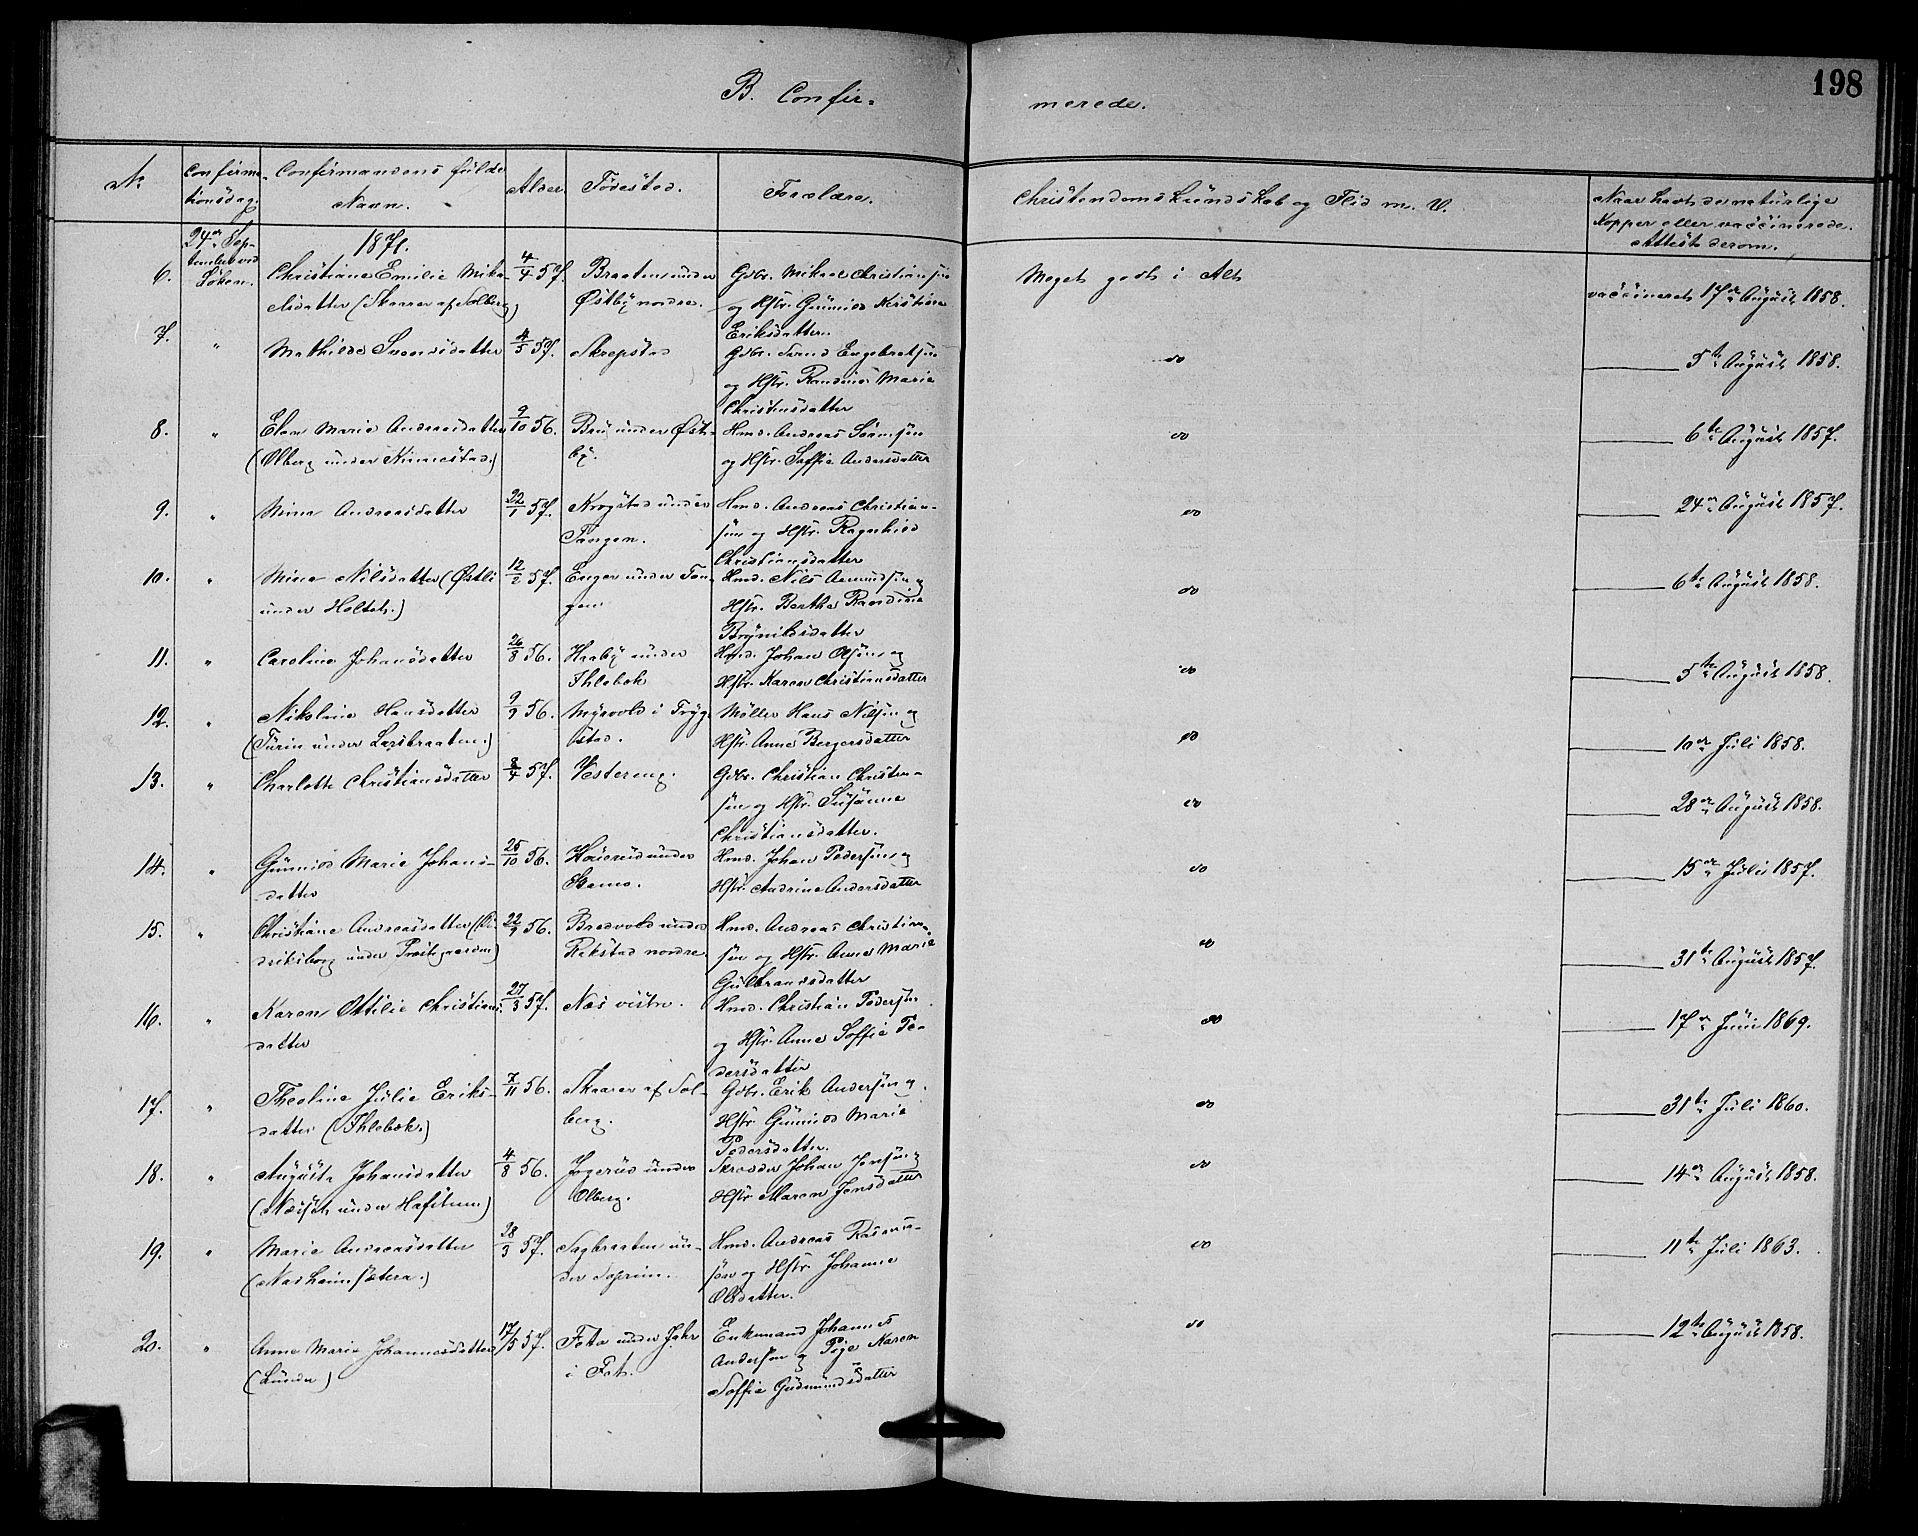 198
B. Confir-
merede.
No
Confirma-
tionsdag.
Confirmandens fulde
Navn.
Alder.
Fødested.
Forældre.
Christendomskundskab og Flid m. V.
Naar havt de naturlige
Kopper eller vaccinerede.
Attest derom.
24de Sep-
tember ved
1871.
6.
Christiane Emilie Mika-
elsdatter (Skaarer af Solberg)
4/4 57.
Braaten under
Østby nordre.
Gdbr. Mikael Christiansøn
og Hstr. Gunnild Kirstine
Eriksdatter.
Meget godt i Alt
vaccineret 17de August 1858.
7.
"
Mathilde Svendsdatter
4/5 57.
Skrepstad
Gdbr. Svend Engebretsøn
og Hstr. Randine Marie
Christensdatter
do
5te August 1858.
8.
"
Elen Marie Andreasdatter
(Olberg under Kinnestad.)
9/10 56.
Bru under Øst-
by.
Hmd. Andreas
og Hstr. Soffie Andersdatter
do
6te August 1857.
9.
"
Mina Andreasdatter
22/1 57.
Krogstad under
Tangen.
Hmd. Andreas Christian-
søn og Hstr. Ragnhild
Christiansdatter
do
24de August 1857.
10.
"
Mina Nilsdatter (Østli
under Holtet.)
12/2 57.
Enger under Tan-
gen
Hmd. Nils Amundsøn og
Hstr. Berthe Randine
Brynildsdatter
do
6te August 1858.
11.
"
Caroline Johansdatter
26/8 56.
Haaby under
Ihlebæk
Hmd. Johan Olsøn og
Hstr. Karen Christiansdatter
do
5te August 1858.
12.
"
Nikoline Hansdatter
(Turin under Larsbraaten.)
9/9 56.
Myrvold i Tryg-
stad.
Møller Hans Nilsøn og
Hstr. Anne Bergersdatter
do
10de Juli 1858.
13.
"
Charlotte Christiansdatter
8/4 57.
Vestereng.
Gdbr. Christian Christen-
søn og Hstr. Susanne
Christiansdatter.
do
28de August 1858.
14.
"
Gunnild Marie Johans-
datter
25/10 56.
Høierud under
Hmd. Johan Pedersøn og
Hstr. Andrine Andersdatter
do
15de Juli 1857.
15.
"
Christiane Andreasdatter
under Præstegaarden)
22/9 56.
Bredvold under
Rakstad nordre.
Hmd. Andreas Christian-
søn og Hstr. Anne Marie
Gulbrandsdatter
do
31te August 1857.
16.
"
Karen Ottilie Christians-
datter
27/3 57.
Næs vestre.
Hmd. Christian Pedersøn
og Hstr. Anne Soffie Pe-
dersdatter
do
17de Juni 1869.
17.
"
Theoline Julie Eriks-
datter (Ihlebæk.)
7/11 56.
Skaarer af Sol-
berg.
Gdbr. Erik Andersøn og
Hstr. Gunnild Marie
Pedersdatter.
do
31te Juli 1860.
18.
"
Auguste Johansdatter
under Hafstum)
4/8 56.
Jogerud under
Olberg.
Skrædder Johan Jensøn og
Hstr. Maren Jensdatter
do
14de August 1858.
19.
"
Marie Andreasdatter
28/3 57.
Sagbraaten un-
der Soprim.
Hmd. Andreas Rasmus-
søn og Hstr. Johanne
Olsdatter.
do
11te Juli 1863.
20.
"
Anne Marie Johannesdatter
(Lunder)
17/5 57.
under Jahr
i Fet.
Enkemand Johannes
Andersøn og Pige Karen
Soffie Gudmundsdatter
do
12te August 1858.